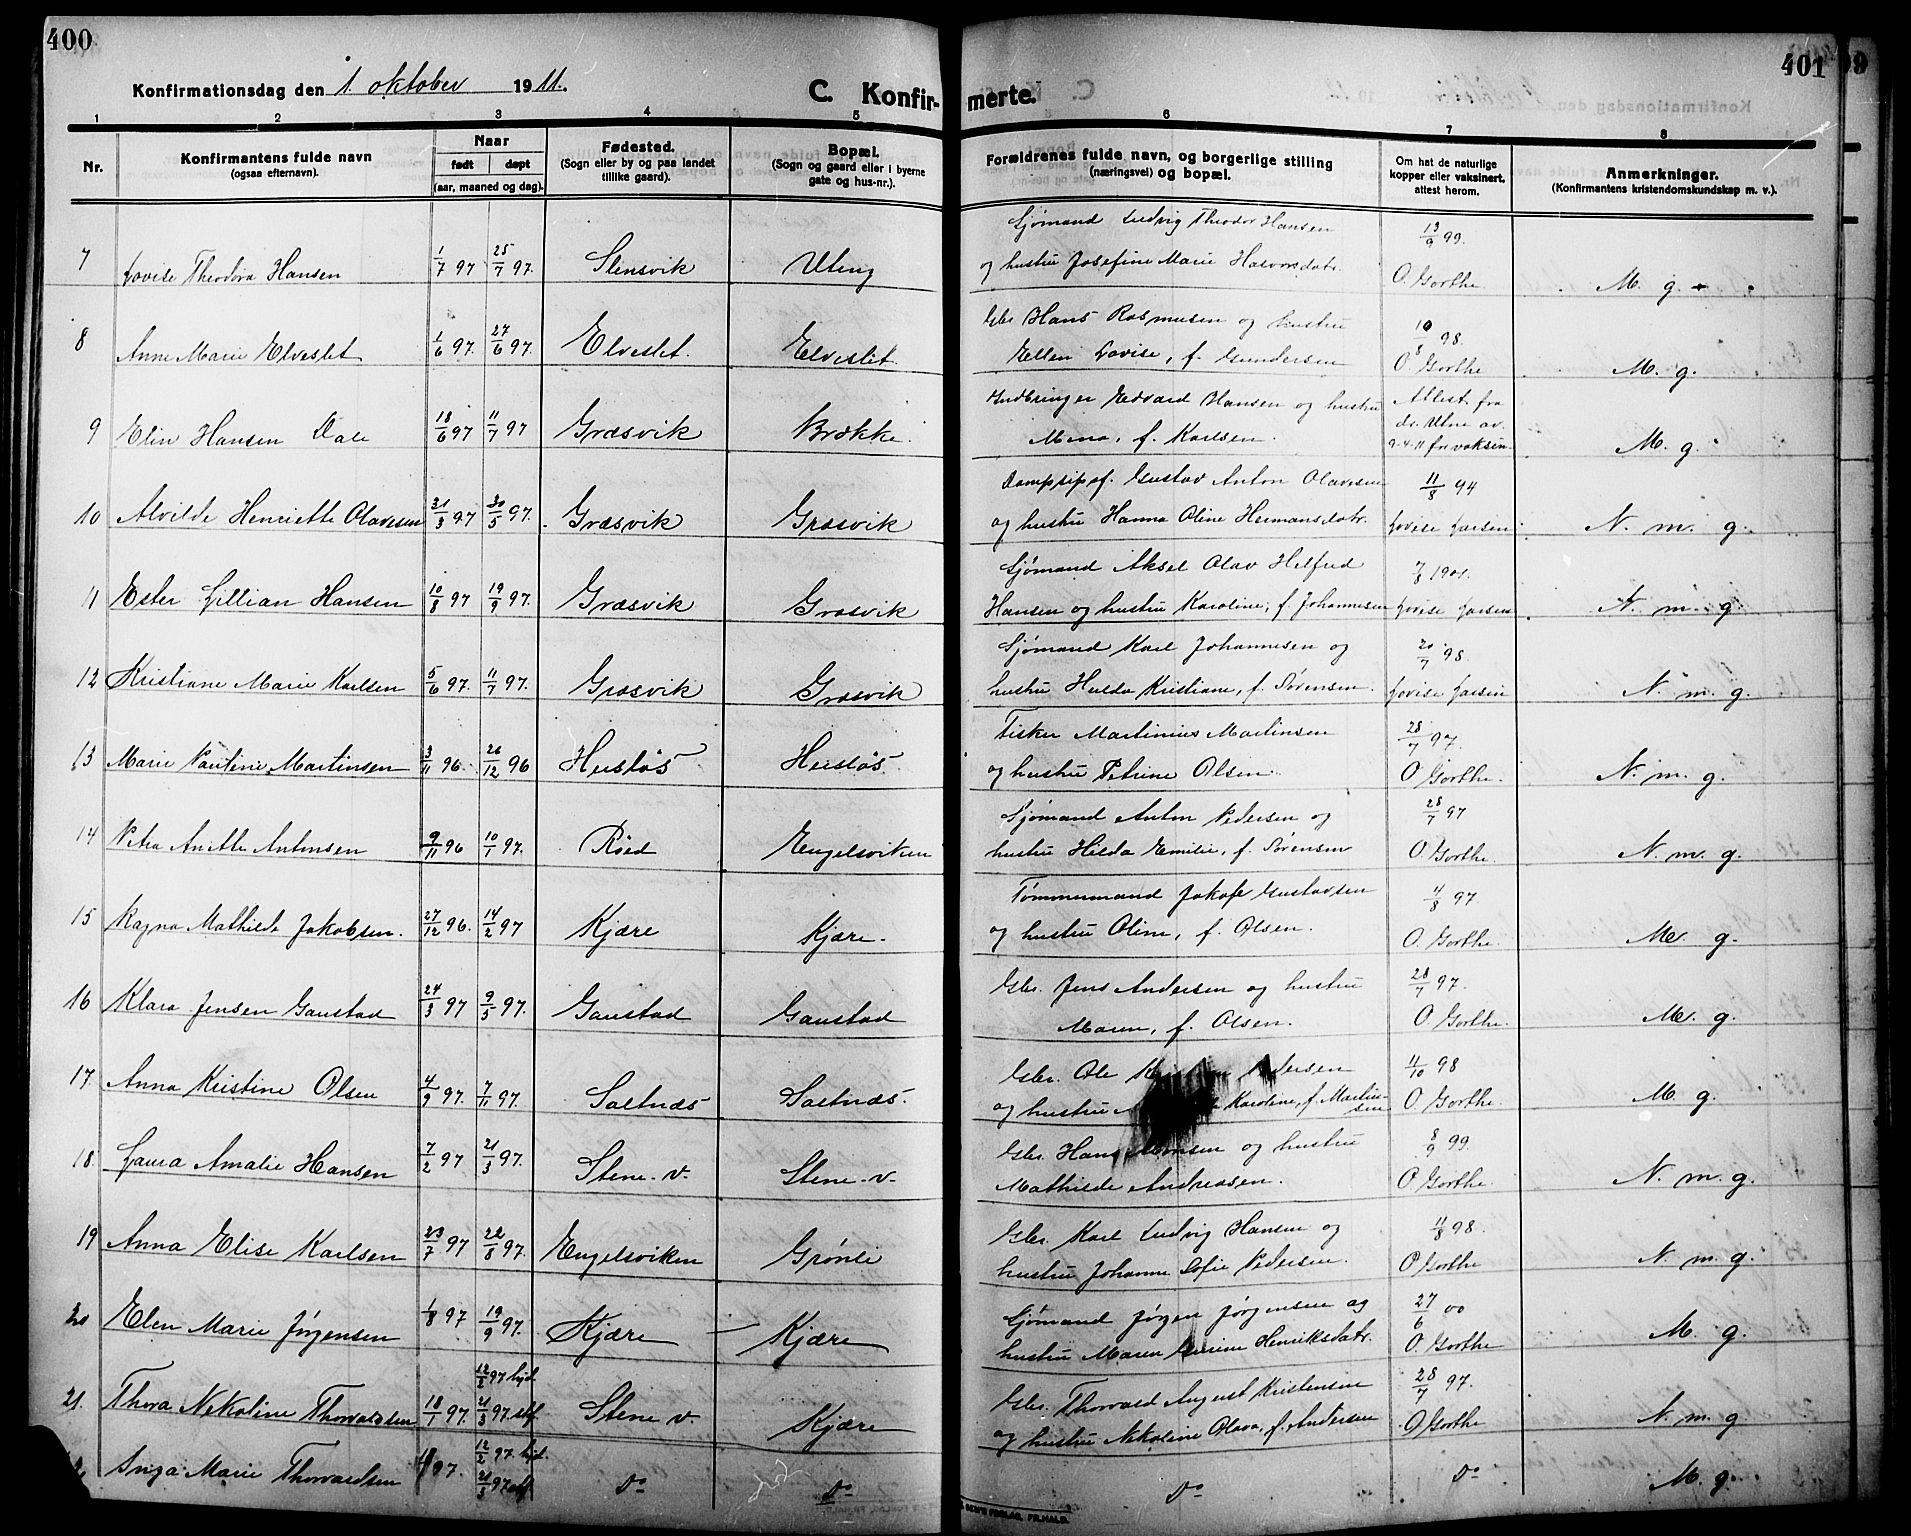 400
401
Konfirmationsdag den 1 oktober 1911.
C. Konfirmerte.
1 2 3 4 5 6 7 8
Nr.
Konfirmantens fulde navn
(ogsaa efternavn).
Naar
født døpt
(aar, maaned og dag).
Fødested.
(Sogn eller by og paa landet
tillike gaard).
Bopæl.
(Sogn og gaard eller i byerne
gate og hus-nr.).
Forældrenes fulde navn, og borgerlige stilling
(næringsvei) og bopæl.
Om hat de naturlige
kopper eller vaksinert,
attest herom.
Anmerkninger.
(Konfirmantens kristendomskundskap m. v.).
7 Lovise Theodora Hansen 1/7 97 25/7 97. Stensvik Uteng
Sjømand Ludvig Theodor Hansen 13/9 99.
og hustru Josefine Marie Halvorsdatr. O. Gorthe. M. g.
8 Anne Marie Elveslet 1/6 97. 27/6 97. Elveslet. Elveslet.
Gbr Hans Rasmusen og hustru 10/8 98.
Ellen Lovise, f. Gundersen O. Gorthe M. g.
9 Elin Hansen Dale 18/6 97 11/7 97 Græsvik Brække.
Indbringer Edvard Hansen og hustru Attest fra
Mina, f. Karlsen. dr. Utne av
9-4-11 for vaksin. M. g.
10 Alvilde Henriette Olavesen 31/3 97 30/5 97. Græsvik Græsvik
Gustav Anton Olavesen 11/8 94
og hustru Hanna Oline Hermansdatr. Lovise Larsen N. m. g.
11 Ester Lillian Hansen 10/8 97 19/9 97. Græsvik Græsvik
Sjømand Aksel Olav Helfred 7/8 1901.
Hansen og hustru Karoline, f. Johannesen Lovise Larsen N. m. g.
12 Kristiane Marie Karlsen 5/6 97. 11/7 97. Græsvik Græsvik
Sjømand Karl Johannesen og 20/7 98.
hustru Hulda Kristiane, f. Sørensen. Lovise Larsen N. m. g.
13 Marie Pauline Martinsen 3/11 96. 26/12 96 Husløs Husløs.
Fisker Martinius Martinsen 28/7 97.
og hustru Petrine Olsen. O Gorthe. N. m. g.
14 Petra Anette Antonsen 9/11 96 10/1 97. Røed Engelsviken
Sjømand Anton Pedersen og 28/7 97
hustru Hilda Emilie, f. Sørensen O. Gorthe. N. m. g.
15 Ragna Mathilde Jakobsen. 27/12 96. 14/2 97 Kjære Kjære.
Tømmermand Jakob Gustavsen 4/8 97.
og hustru Oline, f. Olsen. O. Gorthe. M. g.
16 Klara Jensen Gaustad 24/3 97 9/5 97. Gaustad Gaustad
Gbr. Jens Andersen og hustru 28/7 97.
Maren, f. Olsen. O. Gorthe. M. g.
17. Anna Kristine Olsen 4/9 97. 7/11 97. Saltnæs Saltnæs.
Gbr. Ole Pedersen 11/10 98
og hustru Karoline, f. Martinsen O. Gorthe. M. g.
18. Laura Amalie Hansen 7/2 97 21/3 97. Stene. v. Stene. v.
Gbr. Hans og hustru 8/9 99.
Mathilde Andreasen. O Gorthe. N. m. g.
19 Anna Elise Karlsen 23/7 97 22/8 97. Engelsviken Grønli
Gbr. Karl Ludvig Hansen og 11/8 98.
hustru Johanne Sofie Pedersen. O Gorthe N. m. g.
20 Elen Marie Jørgensen 1/8 97 19/9 97. Kjære Kjære
Sjømand Jørgen Jørgensen og 27/6 00
hustru Maren Henriksdatr. O. Gorthe M. g.
12/2 97 hjd.
21. Thora Nikoline Thorvaldsen 18/1 97. 21/3 97. stf. Stene v. Kjære
Gbr. Thorvald August Kristensen 28/7 97.
og hustru Nikoline Olava, f. Andersen O Gorthe N. m. g
12/2 97. hjd.
Inga Marie Thorvaldsen 97. 21/3 97 stf Do Do
Do Do M. g.
FORLAG, FR.HALD.